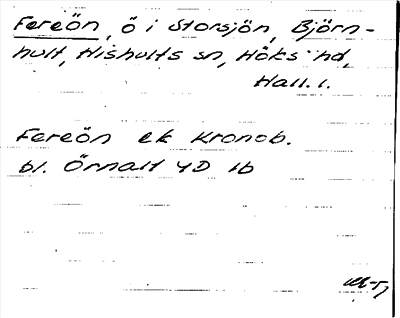 Fereön, ö i Storsjön, Björn-
hult, Hishults sn, Höks hd,
Hall. l.
Fereön ek Kronob.
bl. Örnalt 4D 1b